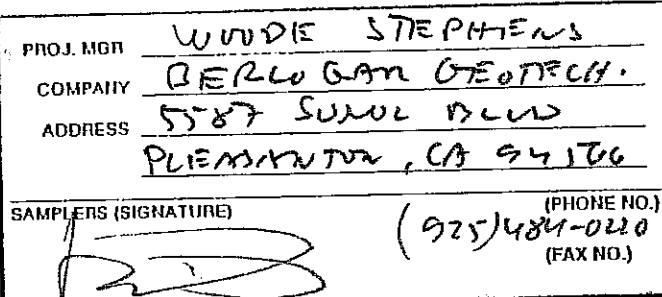 PROJ. MGR WOODIE STEPHENS
COMPANY BERLOGAR GEOTECH.
ADDRESS 5587 SUNOL BLVD
PLEASANTON, CA 94566
SAMPLERS (SIGNATURE) (PHONE NO.)
(925)484-0220
(FAX NO.)